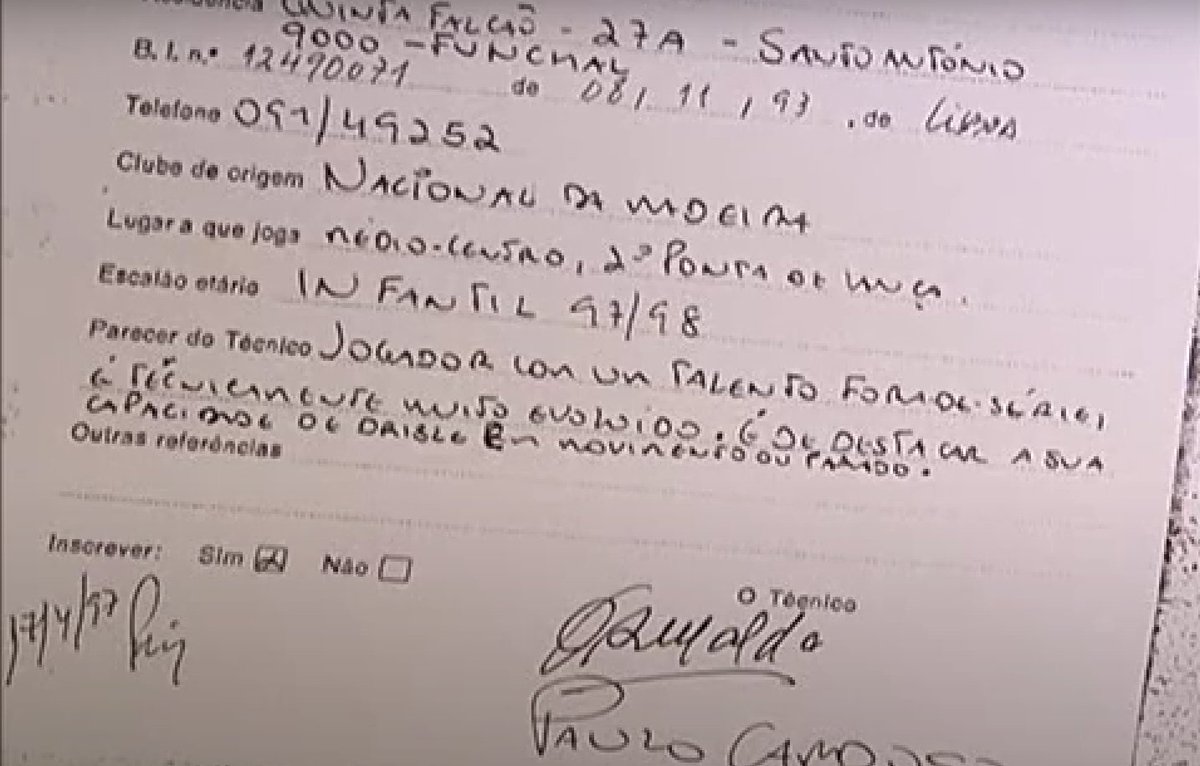 Residência QUINTA FALCÃO - 27A - SANTO ANTÓNIO
9000 - FUNCHAL
B. I. n.º 12490071 de 08, 11, 93, de LISBOA
Telefone 091/49252
Clube de origem NACIONAL DA MADEIRA
Lugar a que joga MÉDIO-CENTRO, 2º PONTA DE LANÇA.
Escalão etário INFANTIL 97/98
Parecer do Técnico JOGADOR COM UM TALENTO FORA DE-SÉRIE,
É TÉCNICAMENTE MUITO EVOLUÍDO. É DE DESTACAR A SUA
CAPACIDADE DE DRIBLE EM MOVIMENTO OU PARADO.
Outras referências
Inscrever: Sim Não
O Técnico
17/4/97
Osvaldo
PAULO CARDOSO